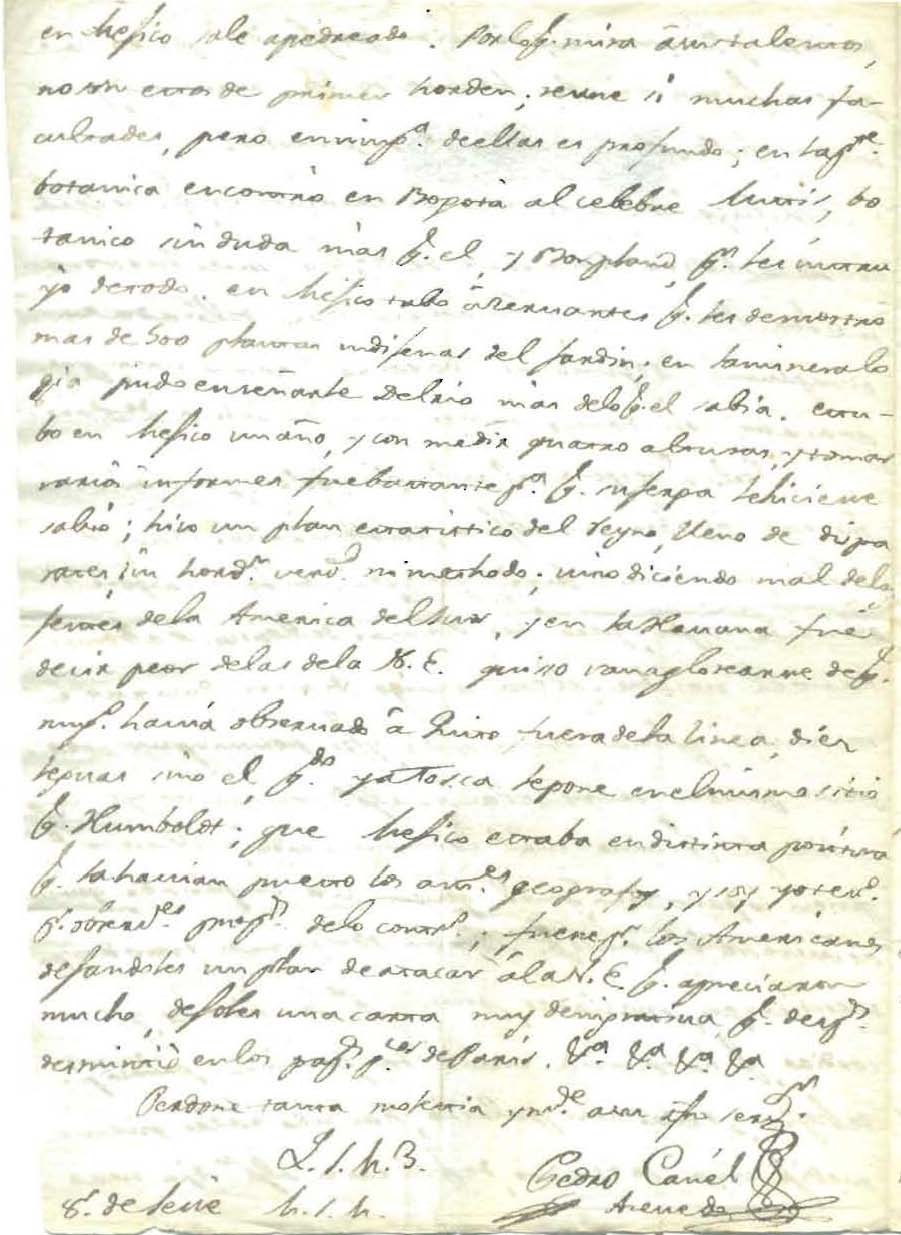 en Mesico sale apedreado. Por lo q. mira â sus talentos,
no son estos de primer horden; reune si muchas fa-
cultades, pero en ning.ª de ellas es profundo; en la p.te
botanica encontrò en Bogotà al celebre Mutis, bo
tanico sin duda màs q. el, y Bonpland, q.n les instru
yò de todo. en Mesico tubo â Zervantes q. les demostrò
mas de 500 plantas indisenas del Jardin; en la mineralo
gia pudo enseñarle Delrio màs delo q. el sabia. estu-
bo en Mesico un año, y con medir quatro alturas, y tomar
varios informes fue bastante p.ª q. se le hiciese
sabio; hizo un plan estatistico del Reyno, lleno de dispa
rates, sin hord.n verd.d ni methodo; vino diciendo mal delas
jentes dela America del Sur, y en la Havana fuè
decir peor delas dela N. E. quiso vanagloriarse de q.
ning.º havia observado â Quito fuera dela linea, diez
leguas sino el, q.do ya Tosca le pone en el mismo sitio
q. Humboldt; que Mesico estaba en distinta postura
q. la havian puesto los ant.es geografos, y
p.r observ.es delo contr.º; fuese p.r los Americanos
desandoles un plan de atacar â la N. E. q. apreciaron
mucho, desoles una carta muy denigrativa q. desp.s
desmintiò en los pap.s p.cos de Paris. &.ª &.ª &.ª &.ª
Perdone tanta molestia y m.de a su serv.or
Q. S. M. B.
Pedro Canèl
Acevedo
8. de M. S. M.